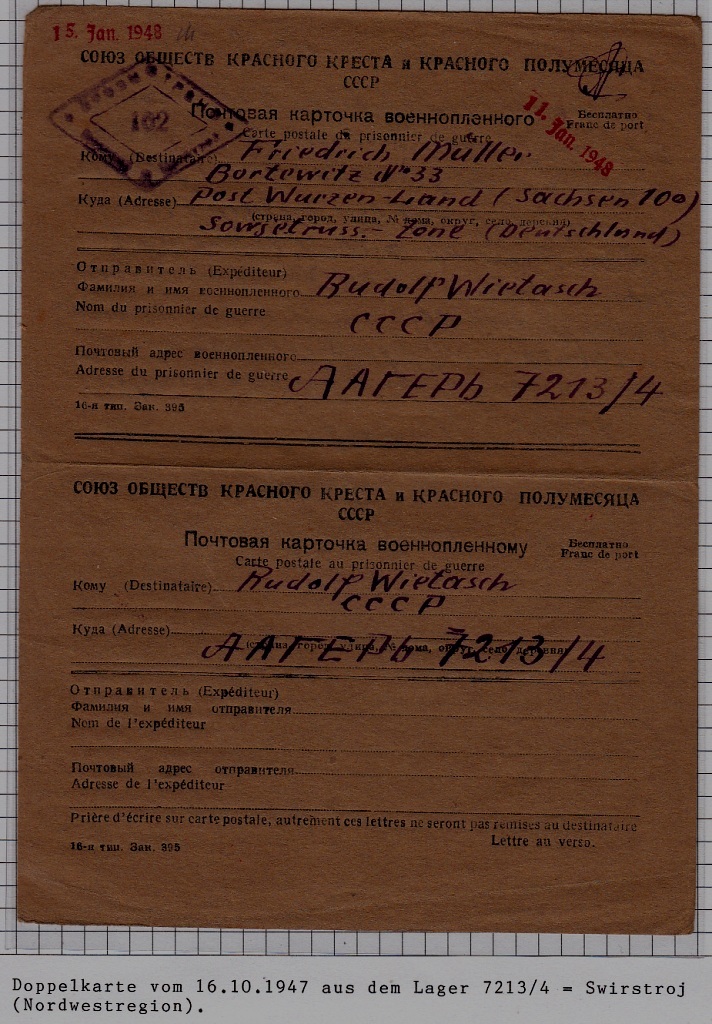 15. Jan. 1948
СОЮЗ ОБЩЕСТВ КРАСНОГО КРЕСТА и КРАСНОГО ПОЛУМЕСЯЦА
СССР
102
Почтовая карточка военнопленного
Бесплатно
Carte postale du prisonnier de guerre
Franc de port
11. Jan. 1948
Кому (Destinataire) Friedrich Müller
Bortewitz № 33
Куда (Adresse) Post Wurzen-Land (Sachsen 10a)
(страна, город, улица, № дома, округ, село, деревня)
Sowjetruss.- Zone (Deutschland)
Отправитель (Expéditeur)
Фамилия и имя военнопленного Rudolf Wietasch
Nom du prisonnier de guerre
СССР
Почтовый адрес военнопленного
Adresse du prisonnier de guerre ЛАГЕРЬ 7213/4
16-я тип. Зак. 395
СОЮЗ ОБЩЕСТВ КРАСНОГО КРЕСТА и КРАСНОГО ПОЛУМЕСЯЦА
СССР
Почтовая карточка военнопленному
Бесплатно
Carte postale au prisonnier de guerre
Franc de port
Кому (Destinataire) Rudolf Wietasch
СССР
Куда (Adresse)
(страна, город, улица, № дома, округ, село, деревня)
ЛАГЕРЬ 7213/4
Отправитель (Expéditeur)
Фамилия и имя отправителя
Nom de l'expéditeur
Почтовый адрес отправителя
Adresse de l'expéditeur
Prière d'écrire sur carte postale, autrement ces lettres ne seront pas remises au destinataire
16-я тип. Зак. 395
Lettre au verso.
Doppelkarte vom 16.10.1947 aus dem Lager 7213/4 = Swirstroj
(Nordwestregion).